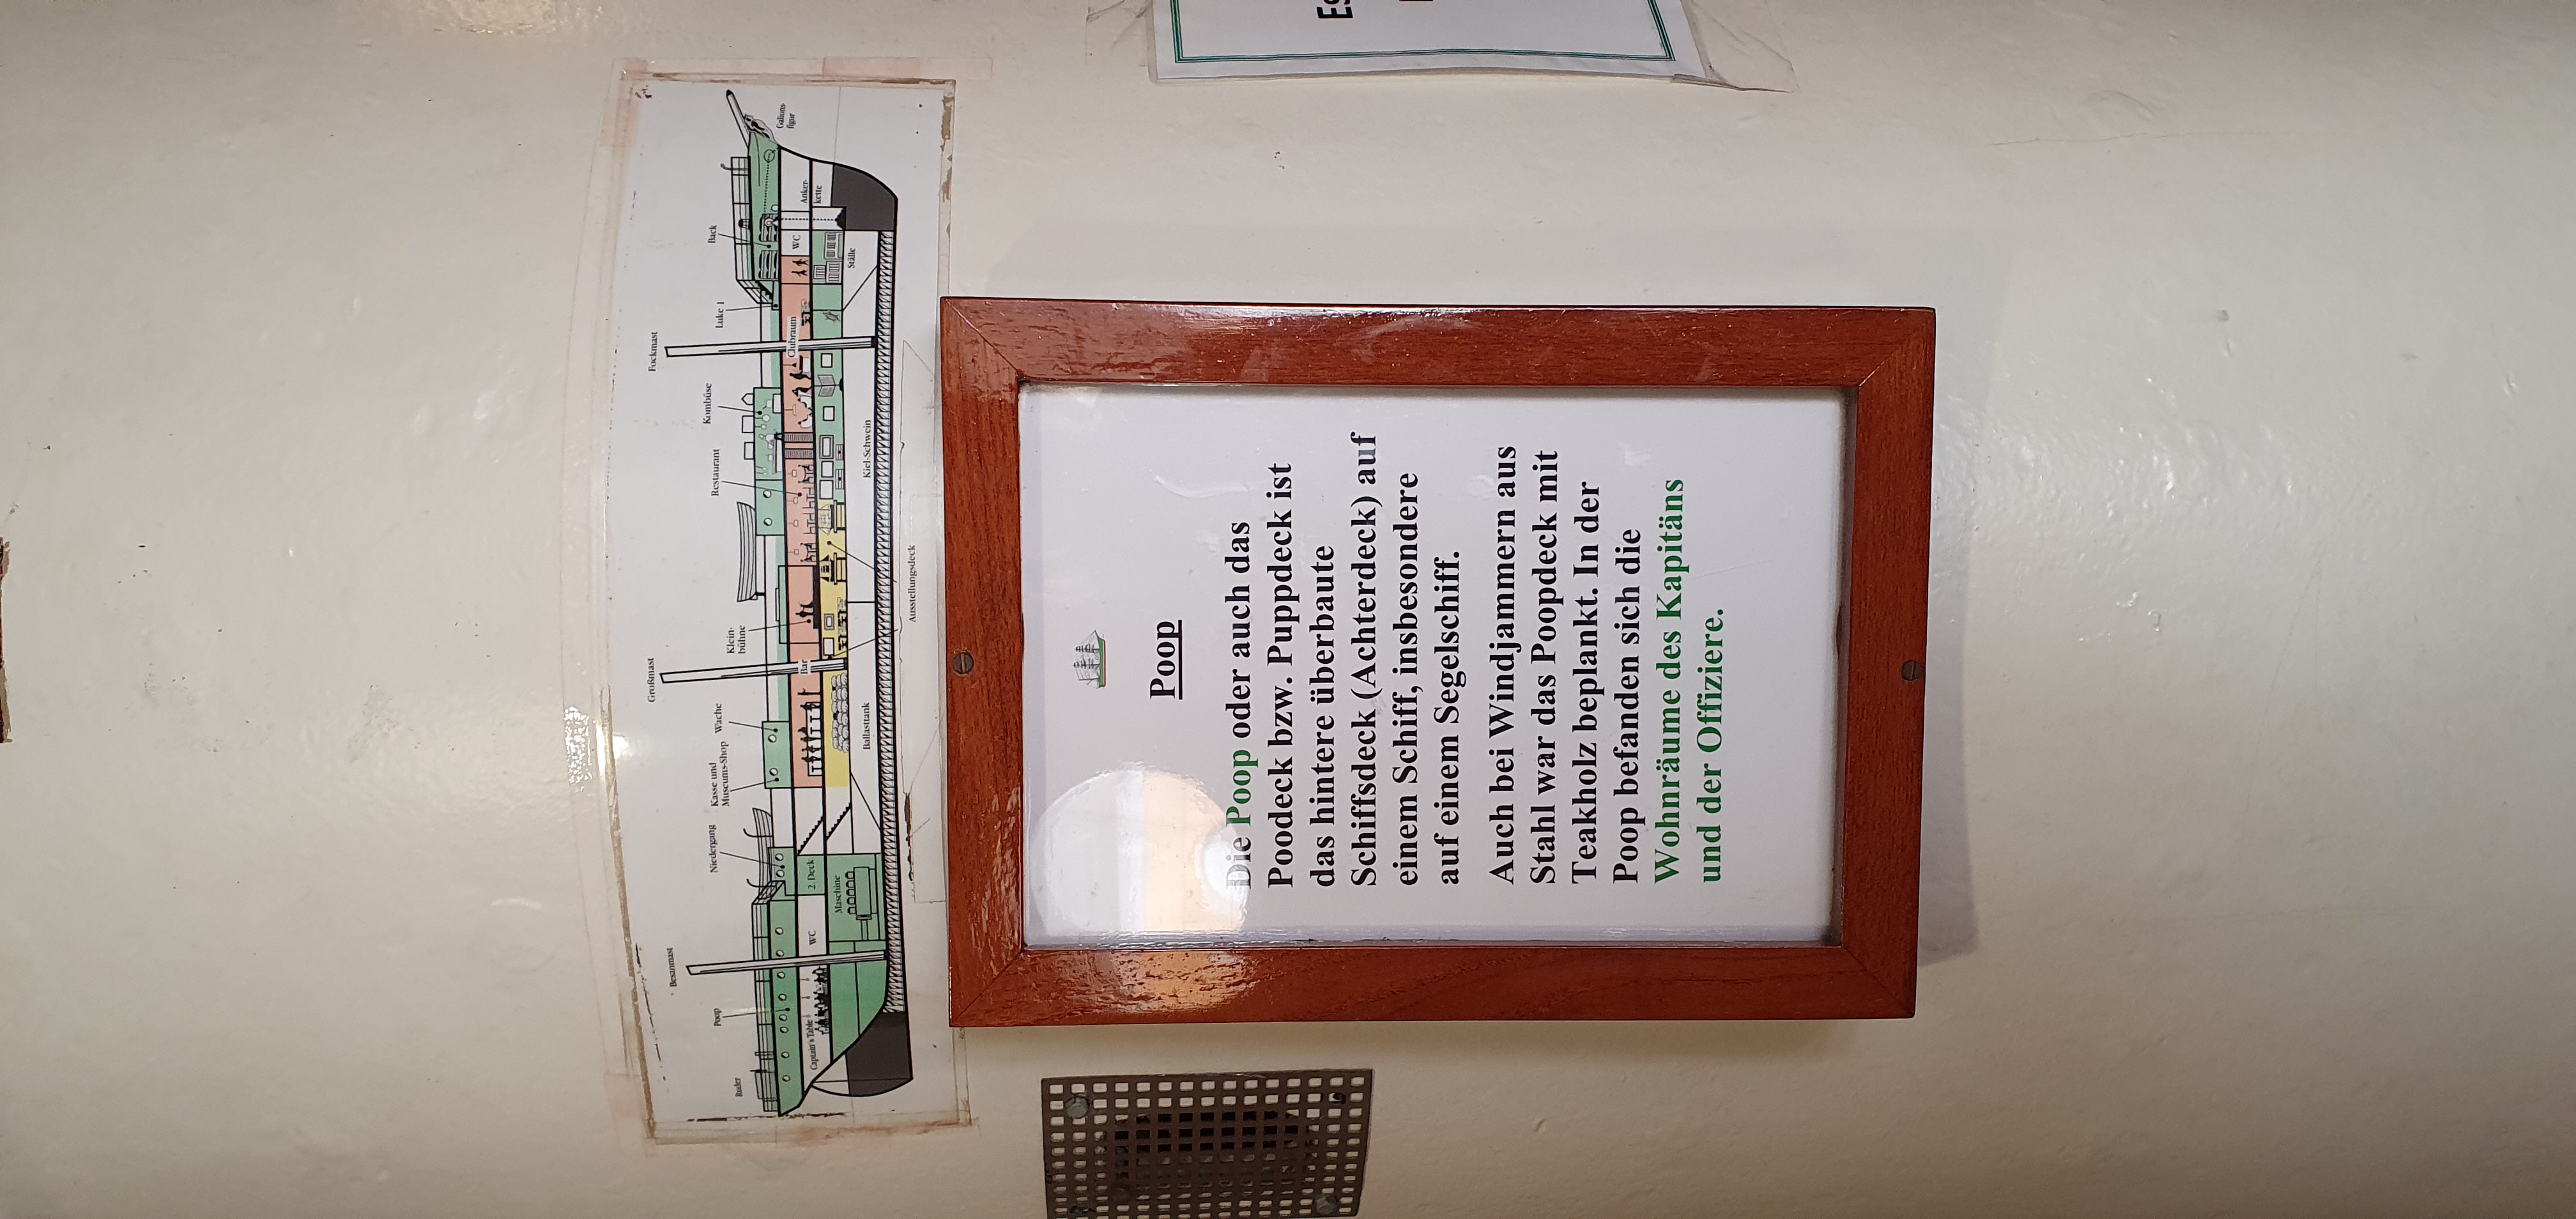 Es
Fockmast
Großmast
Besanmast
Back
Luke 1
Kombüse
Restaurant
Klein-
bühne
Wache
Kasse und
Museums-Shop
Niedergang
Poop
Ruder
Galions-
figur
Anker-
kette
WC
Ställe
Clubraum
Kiel-Schwein
Bar
Ausstellungsdeck
Ballasttank
2. Deck
Maschine
WC
Captain's Table
Poop
Die Poop oder auch das
Poodeck bzw. Puppdeck ist
das hintere überbaute
Schiffsdeck (Achterdeck) auf
einem Schiff, insbesondere
auf einem Segelschiff.
Auch bei Windjammern aus
Stahl war das Poopdeck mit
Teakholz beplankt. In der
Poop befanden sich die
Wohnräume des Kapitäns
und der Offiziere.